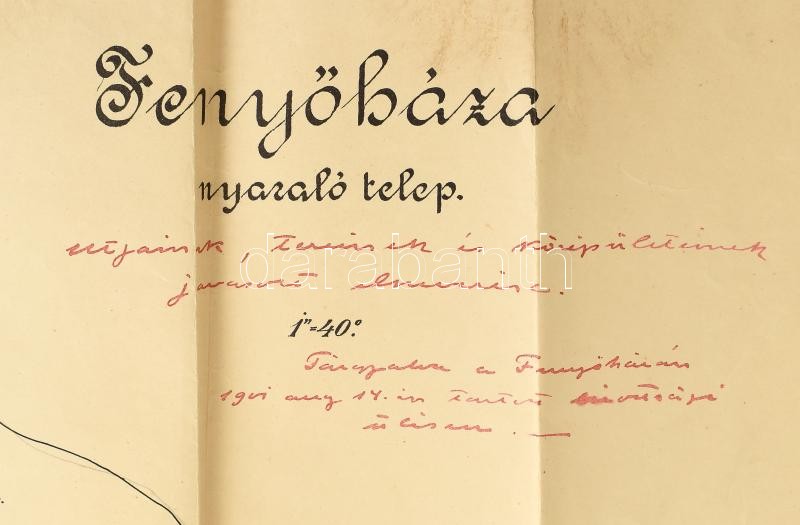 Fenyőháza
nyaraló telep.
utjainak, tereinek és középületeinek
javasolt elnevezése.
1"=40.°
Tárgyalva a Fenyőházán
1901 aug 14.-én tartott bizottsági
ülésen.
darabanth